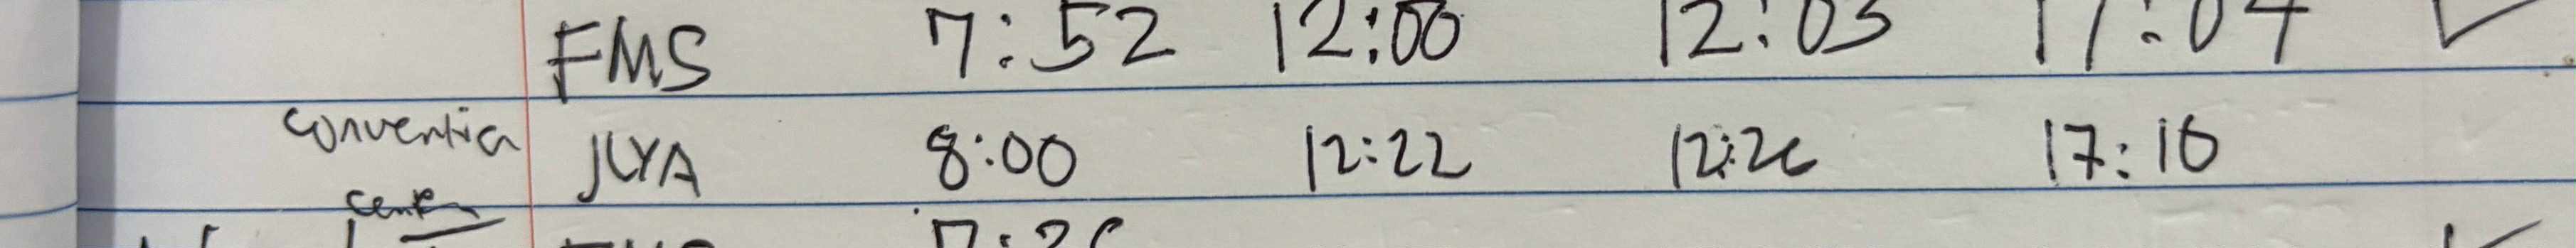 FMS 7:52 12:00 12:03 17:04 ✓
Convention JLYA 8:00 12:22 12:26 17:10
Center